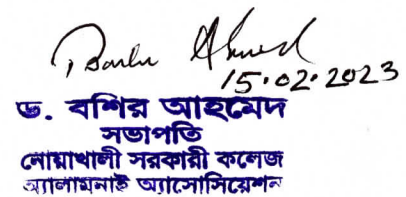 Bashir Ahmed
15.02.2023
ড. বশির আহমেদ
সভাপতি
নোয়াখালী সরকারী কলেজ
অ্যালামনাই অ্যাসোসিয়েশন